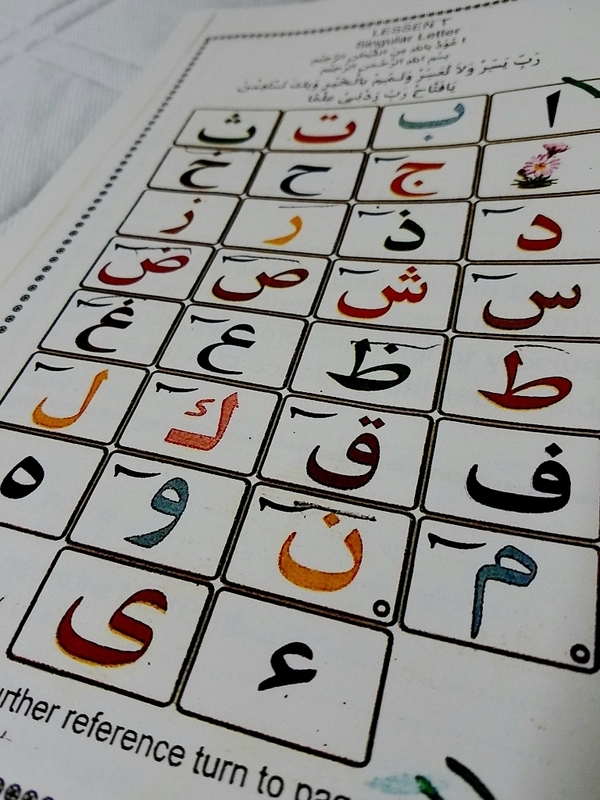 LESSEN 1
Singular Letter
اَعُوْذُ بِاللهِ مِنَ الشَّيْطٰنِ الرَّجِيْمِ
بِسْمِ اللهِ الرَّحْمٰنِ الرَّحِيْمِ
رَبِّ يَسِّرْ وَلَا تُعَسِّرْ وَتَمِّمْ بِالْخَيْرِ وَبِكَ نَسْتَعِيْنُ
يَا فَتَّاحُ رَبِّ زِدْنِيْ عِلْمًا
ا ب ت ث
ج ح خ
د ذ ر ز
س ش ص ض
ط ظ ع غ
ف ق ك ل
م ن و ه
ء ى
urther reference turn to pag